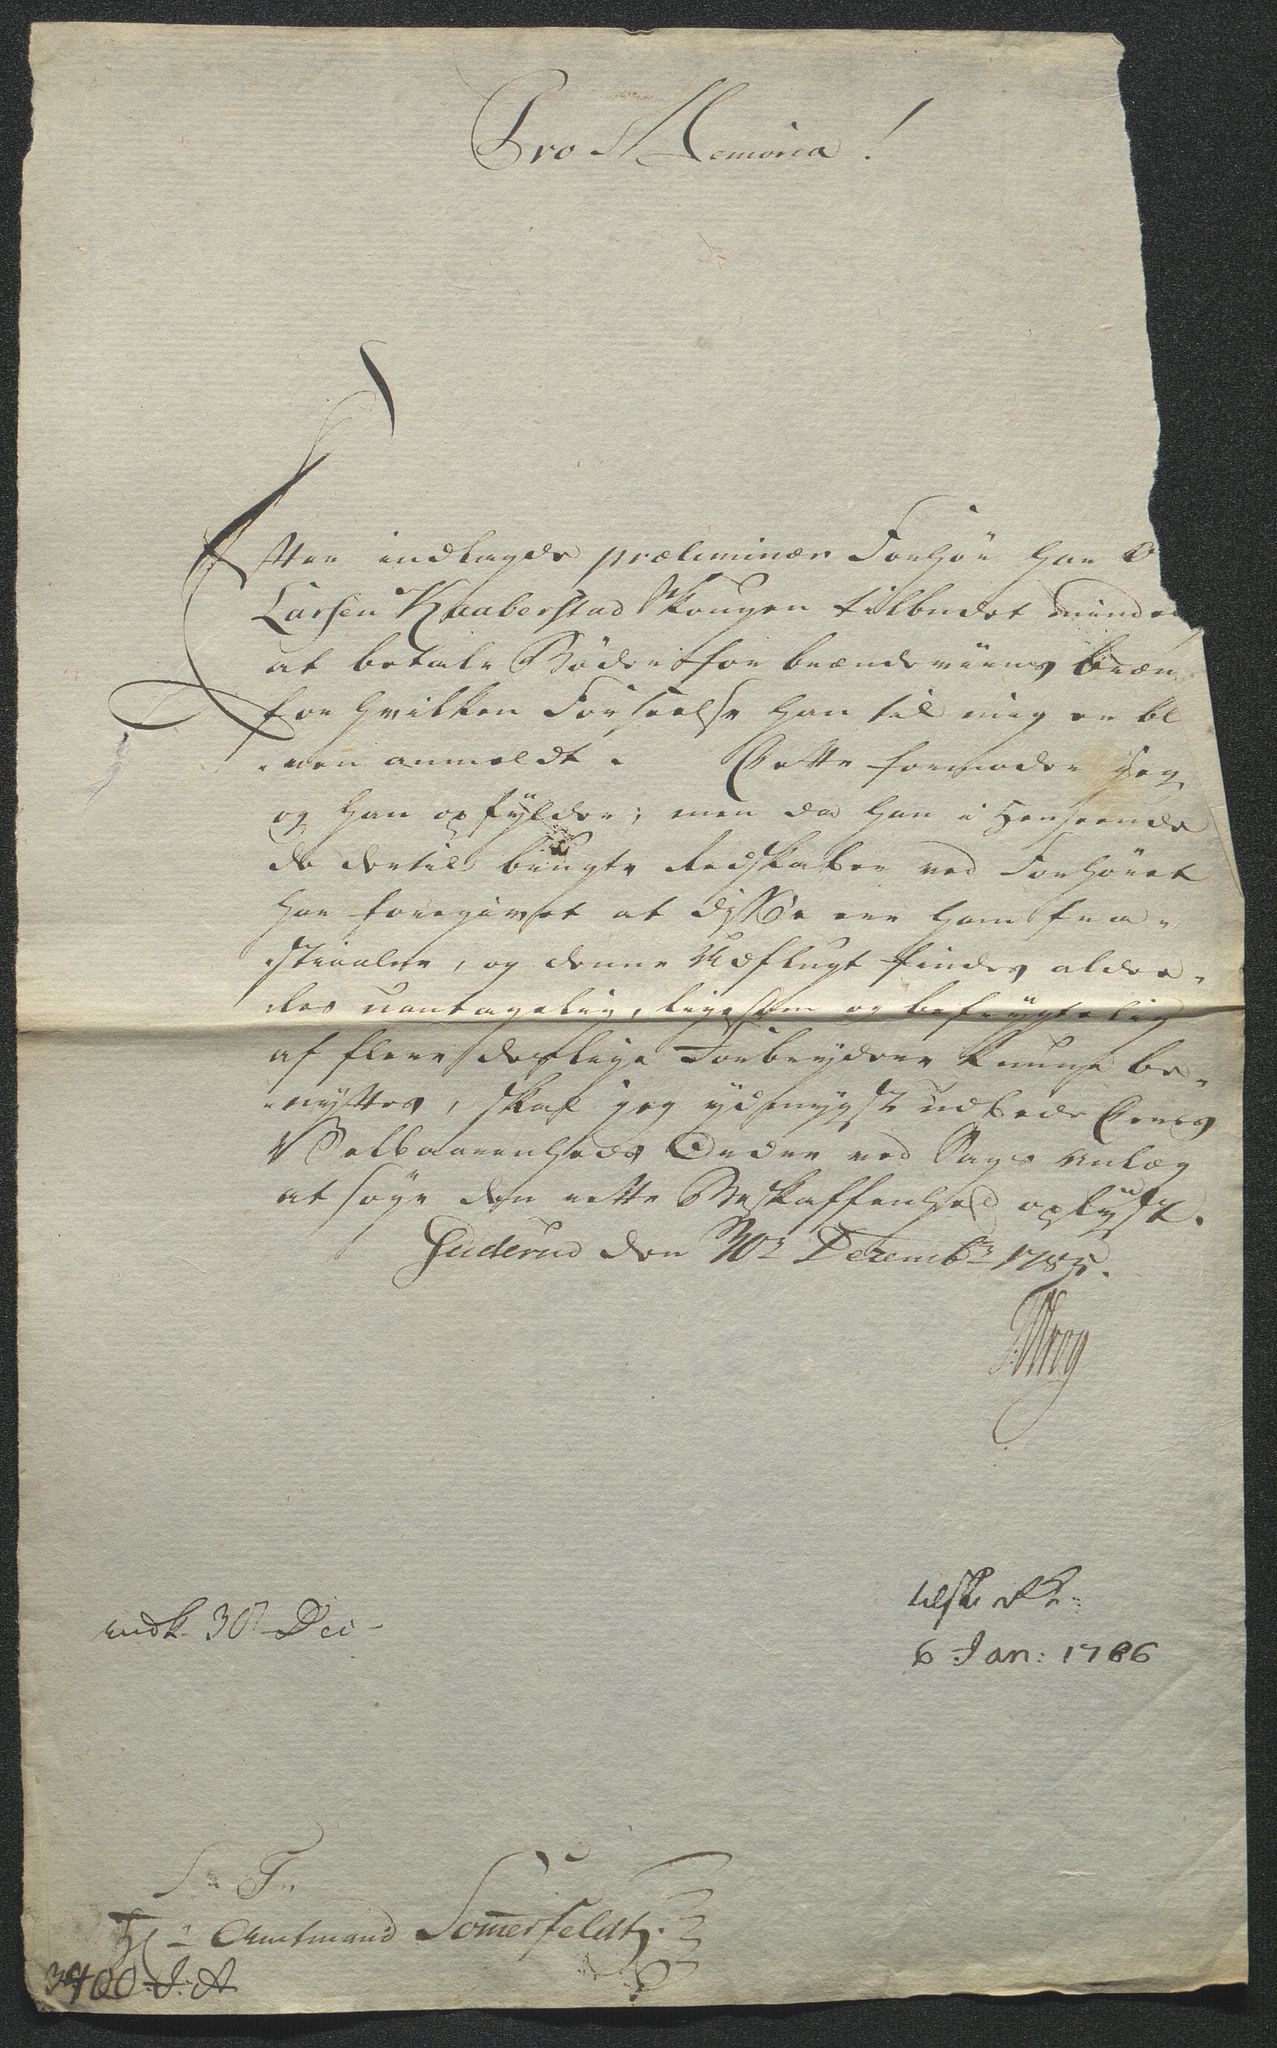 Pro Memoria!
Efter indlagde præliminær Forhör har O
Larsen Kaaberstad Skougen tilbudet minde
at betale Böder for brændeviins bræn
for hvilken Forseelse han til mig er ble
-ven anmeldt. Dette formoder jeg
og han opfylder; men da han i Henseende
de dertil brugte Redskaber ved Forhöret
har foregivet at disse ere ham fra-
-stiaalne, og denne Udflugt findes alde-
-les uantagelig, ligesom og befrygtelig
af flere deslige Forbrydere kunne be-
-nyttes, skal jeg ydmygst udbede Deres
Velbaarenheds Ordre ved Sags Anlæg
at söge den rette Beskaffenhed oplyst.
Guderud den 30te Decembr 1785.
indk. 30t Dec
6 Jan: 1786
S. T.
Hr Amtmand Somerfeldt.
3400 J. A.